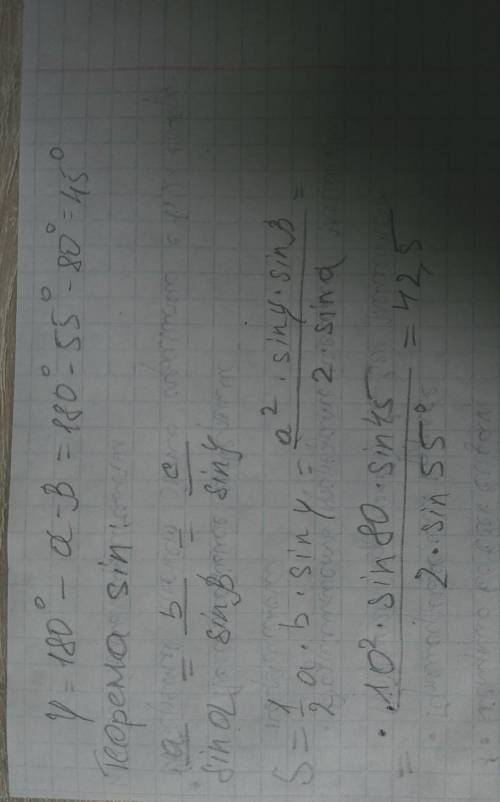 γ = 180° - α - β = 180° - 55° - 80° = 45°
Теорема sin:
a/sinα = b/sinβ = c/sinγ
S = 1/2 a · b · sinγ = a² · sinγ · sinβ / 2 sinα =
= 10² · sin80 · sin45 / 2 · sin55° = 42,5